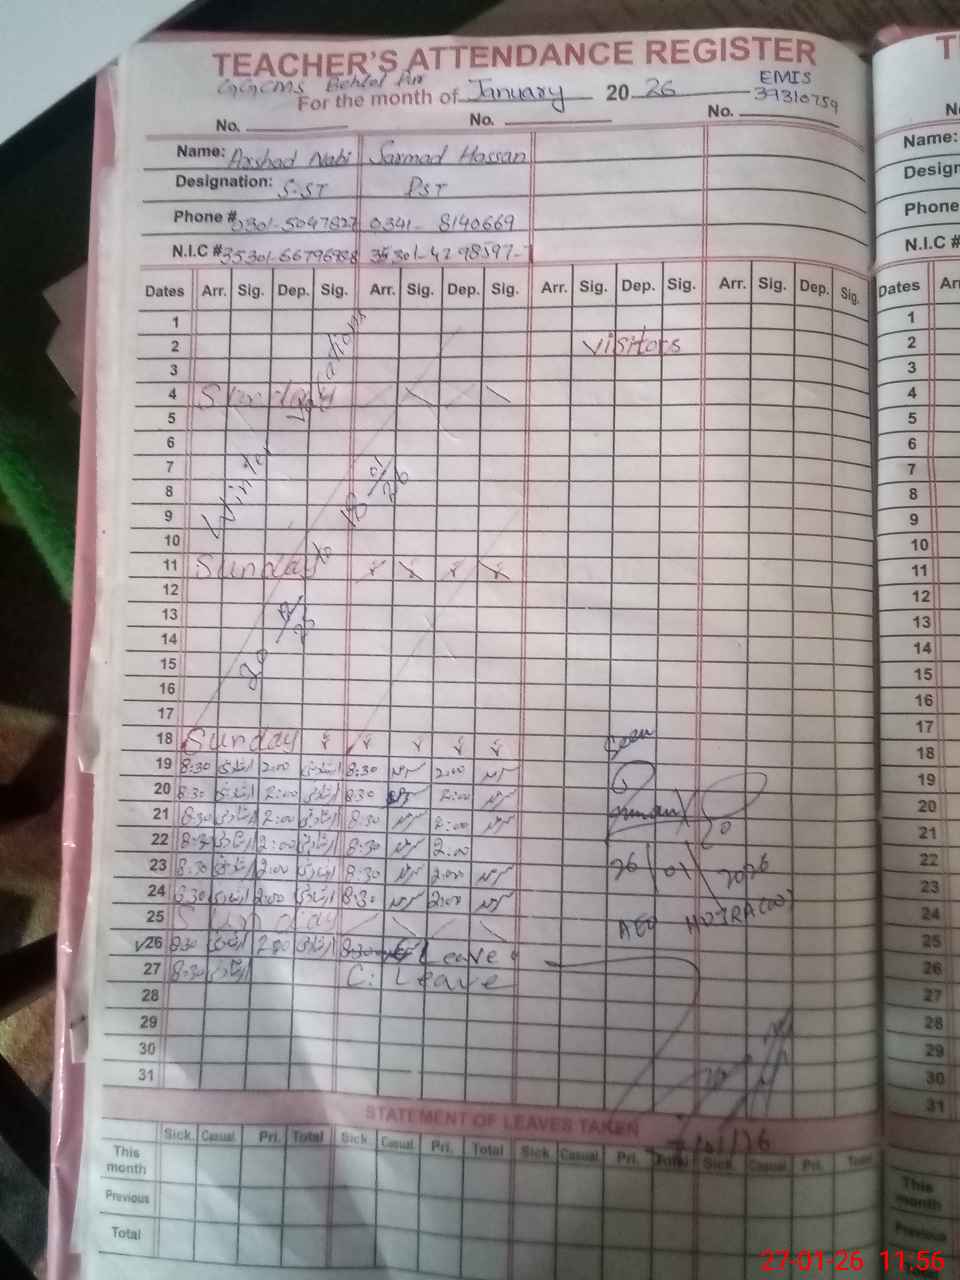 TEACHER'S ATTENDANCE REGISTER
GGCMS Behlol Pur
For the month of January 2026 EMIS 39310759
No. No. No.
Name: Arshad Nabi Sarmad Hassan
Designation: S.ST PST
Phone # 0301-5047827 0341-8140669
N.I.C # 35301-66796988 35301-4298597-7
Dates Arr. Sig. Dep. Sig. Arr. Sig. Dep. Sig. Arr. Sig. Dep. Sig. Arr. Sig. Dep. Sig.
1
2 visitors
3
4 Sunday
5
6
7
8
9
10
11 Sunday
12
13
14
15
16
17
18 Sunday
Winter Vacations
to 18 01/26
Seen
19 8:30 2:00 8:30 2:00
20 8:30 2:00 8:30 2:00
21 8:30 2:00 8:30 2:00
22 8:30 2:00 8:30 2:00
23 8:30 2:00 8:30 2:00
26/01/2026
24 8:30 2:00 8:30 2:00
25 Sunday
AEO
26 8:30 2:00 8:30 Leave
27 8:30 C: Leave
28
29
30
31
STATEMENT OF LEAVES TAKEN
Sick. Casual. Pri. Total Sick. Casual. Pri. Total Sick. Casual. Pri. Total Sick. Casual. Pri. Total
This month
Previous
Total
Name:
Phone
N.I.C #
Dates
1
2
3
4
5
6
7
8
9
10
11
12
13
14
15
16
17
18
19
20
21
22
23
24
25
26
27
28
29
30
31
This month
Previous
27-01-26 11:56